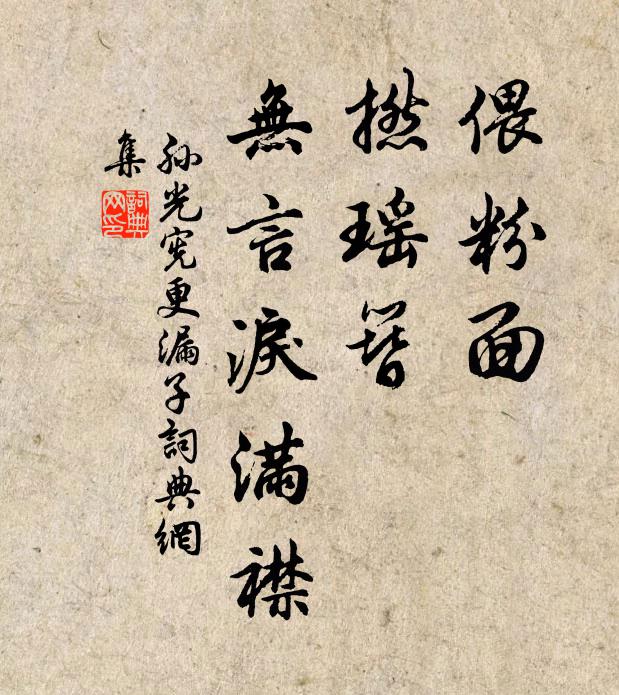 偎粉面
撚瑶簪
無言淚滿襟
孙光宪更漏子詞典網
集
詞典
网印